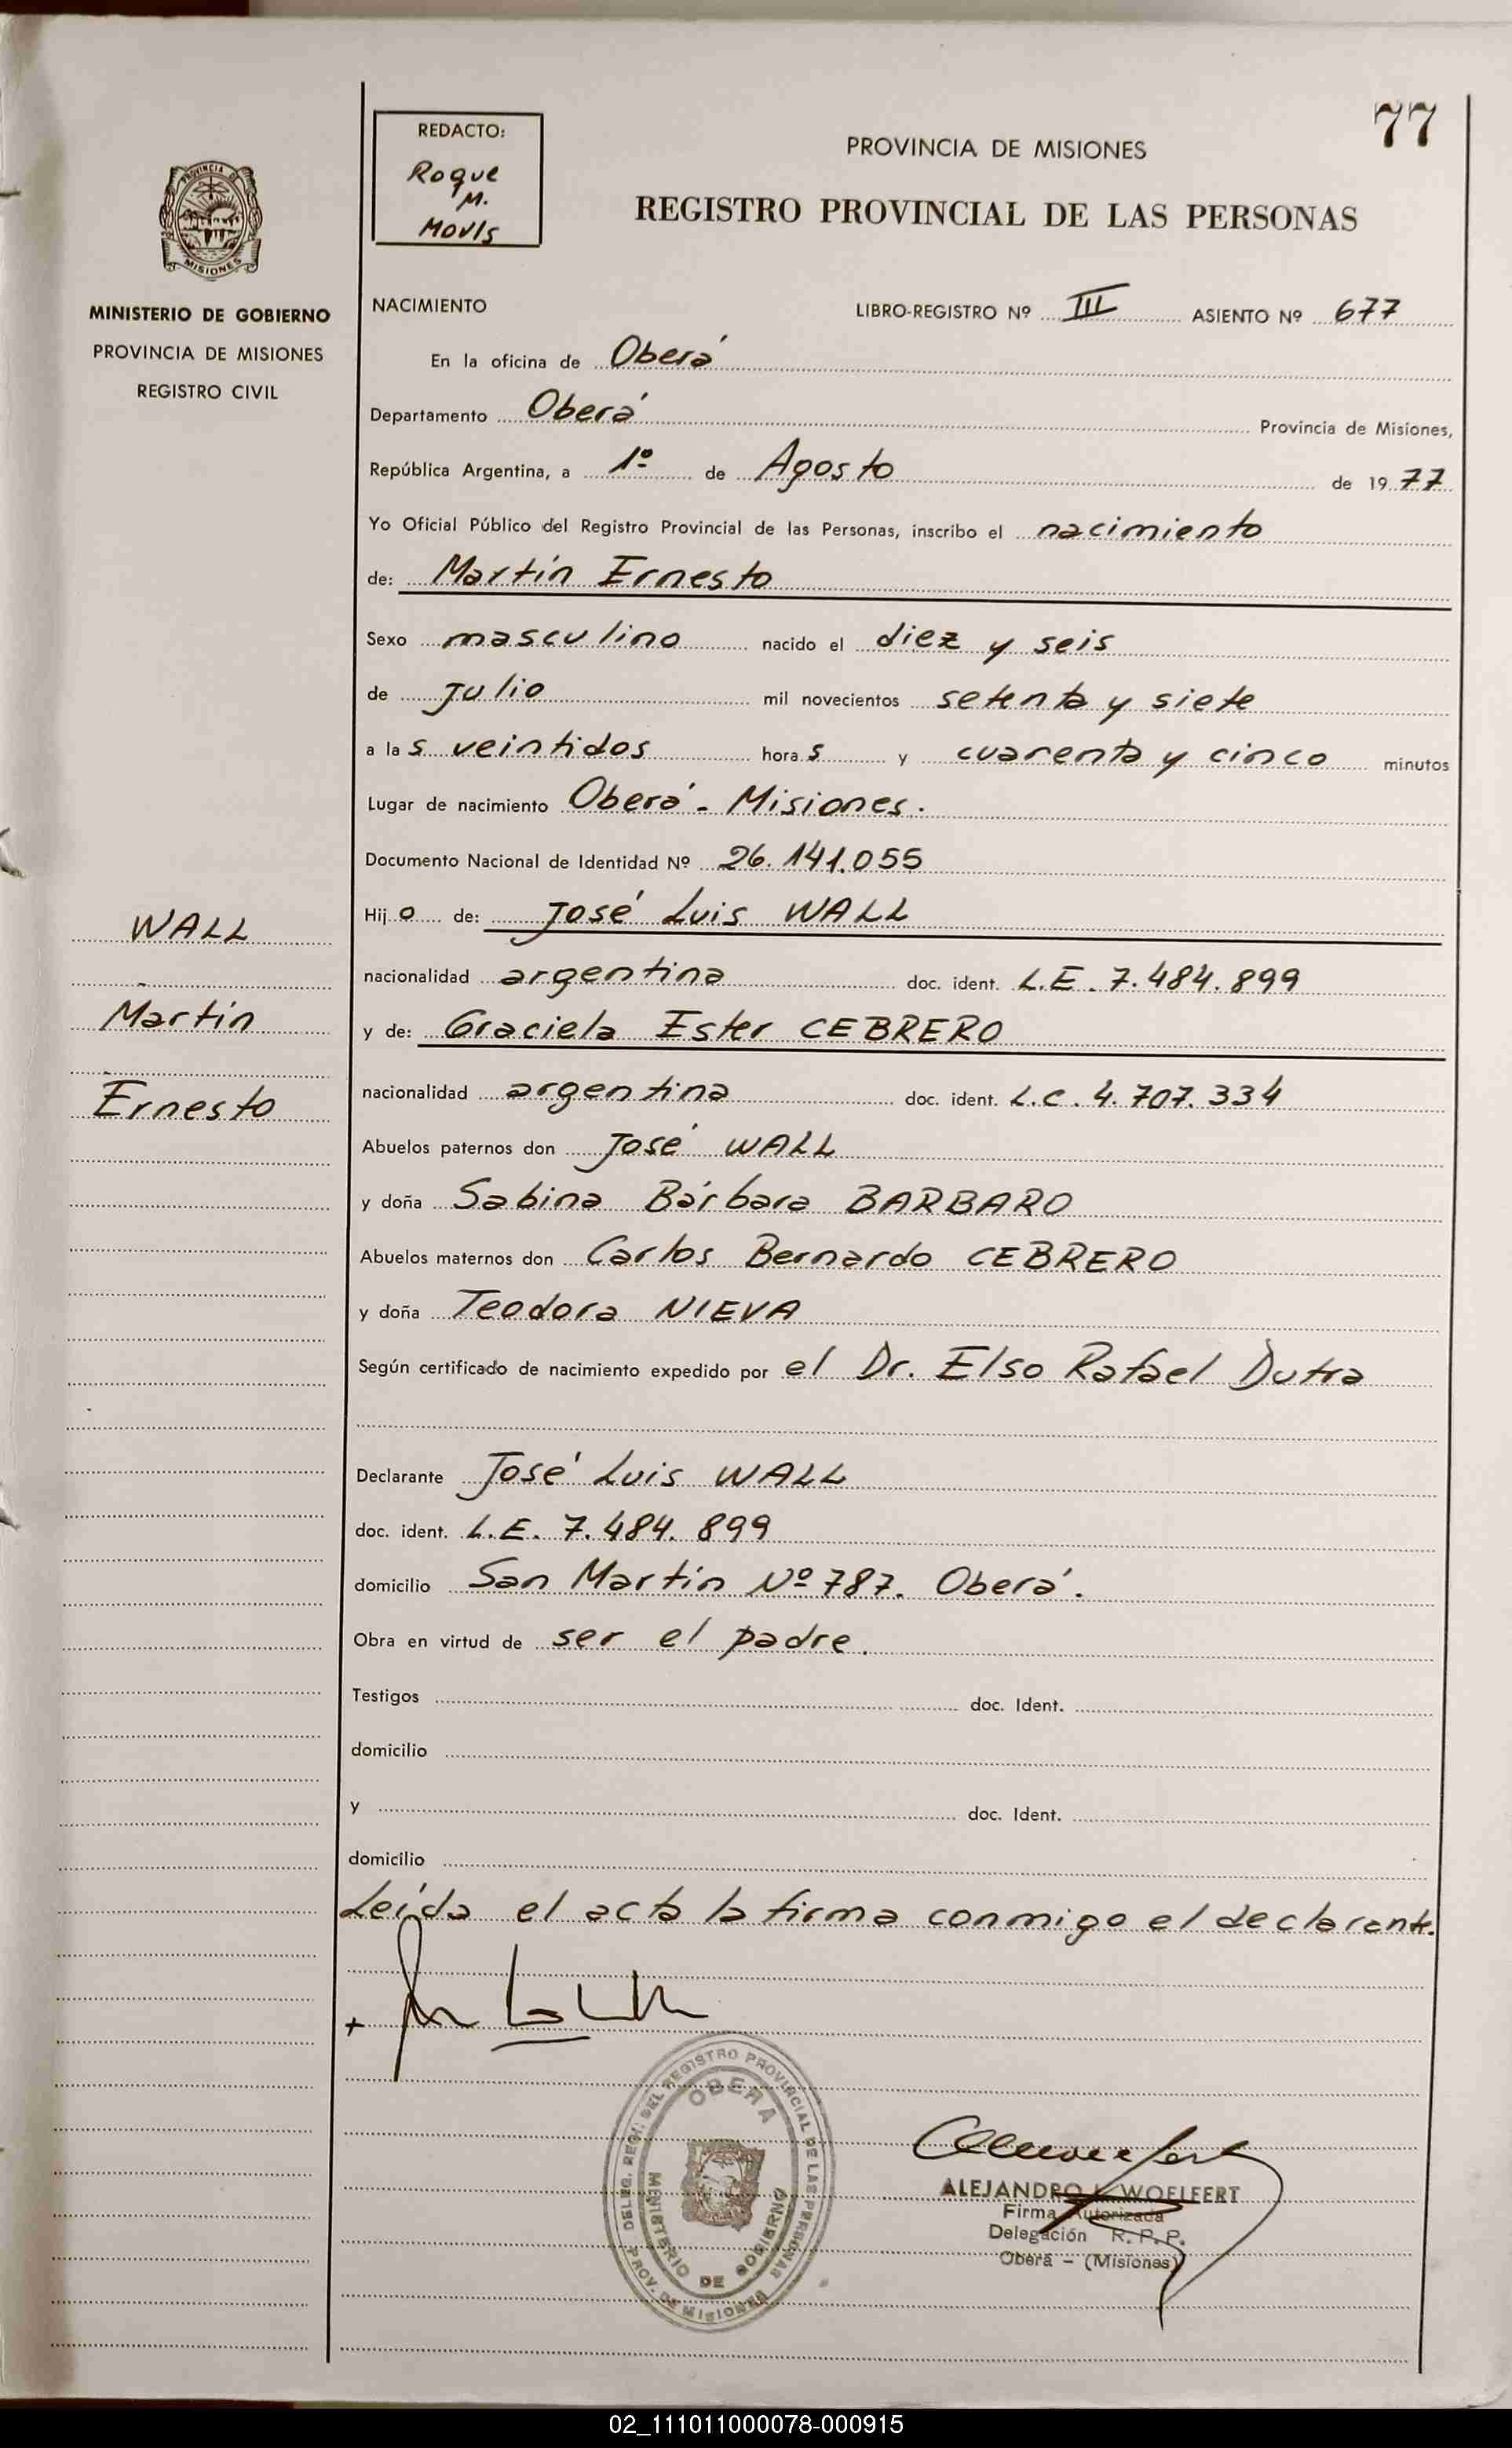 77
REDACTO:
Roque
M.
Movls
PROVINCIA DE MISIONES
REGISTRO PROVINCIAL DE LAS PERSONAS
PROVINCIA DE
MISIONES
MINISTERIO DE GOBIERNO
PROVINCIA DE MISIONES
REGISTRO CIVIL
NACIMIENTO LIBRO-REGISTRO Nº III ASIENTO Nº 677
En la oficina de Oberá
Departamento Oberá Provincia de Misiones,
República Argentina, a 1º de Agosto de 1977
Yo Oficial Público del Registro Provincial de las Personas, inscribo el nacimiento
de: Martín Ernesto
Sexo masculino nacido el diez y seis
de Julio mil novecientos setenta y siete
a las veintidos horas y cuarenta y cinco minutos
Lugar de nacimiento Oberá - Misiones.
Documento Nacional de Identidad Nº 26.141.055
Hijo de: José Luis WALL
nacionalidad argentina doc. ident. L.E. 7.484.899
y de: Graciela Ester CEBRERO
nacionalidad argentina doc. ident. L.C. 4.707.334
Abuelos paternos don José WALL
y doña Sabina Bárbara BARBARO
Abuelos maternos don Carlos Bernardo CEBRERO
y doña Teodora NIEVA
Según certificado de nacimiento expedido por el Dr. Elso Rafael Dutra
Declarante José Luis WALL
doc. ident. L.E. 7.484.899
domicilio San Martín Nº 787. Oberá.
Obra en virtud de ser el padre.
Testigos doc. Ident.
domicilio
y doc. Ident.
domicilio
Leída el acta la firma conmigo el declarante.
WALL
Martín
Ernesto
DELEG. REGI. DEL REGISTRO PROVINCIAL DE LAS PERSONAS
OBERA
MINISTERIO DE GOBIERNO
PROV. DE MISIONES
ALEJANDRO WOELFERT
Firma Autorizada
Delegación R. P. P.
Oberá - (Misiones)
02_111011000078-000915